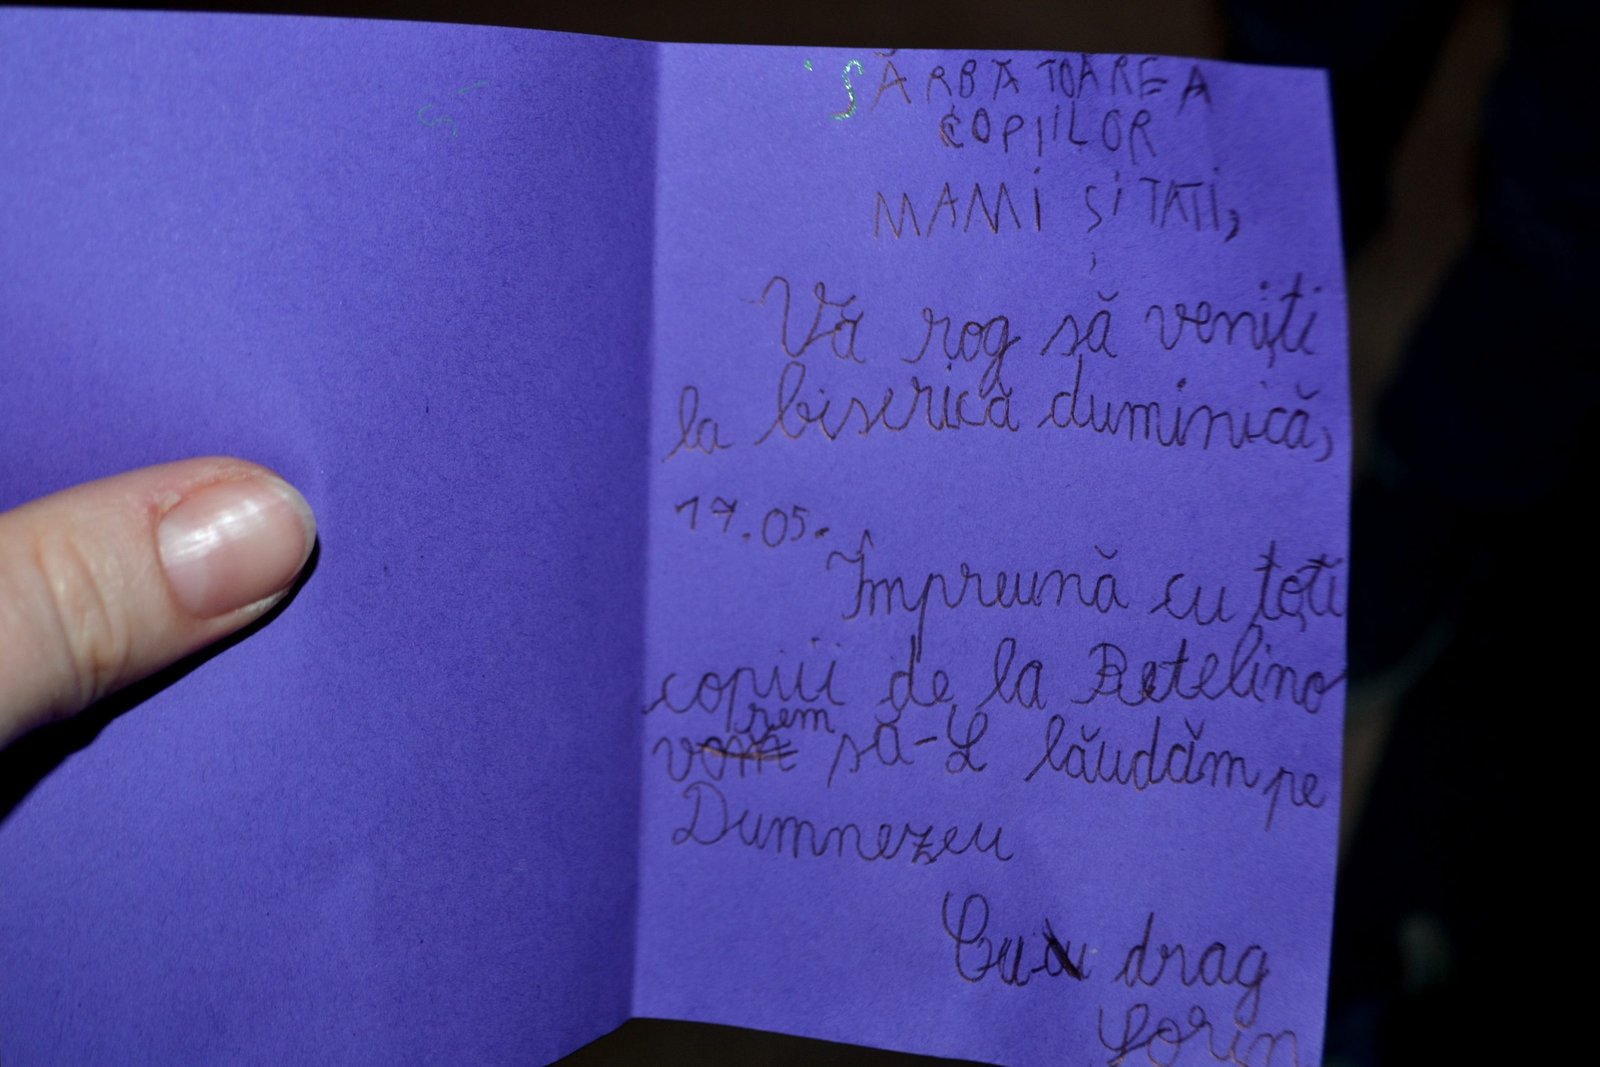 SĂRBĂTOAREA
COPIILOR
MAMI ȘI TATI,
Vă rog să veniți
la biserică duminică,
17.05.
Împreună cu toți
copiii de la Betelino
vrem să-L lăudăm pe
Dumnezeu
Cu drag
Sorin